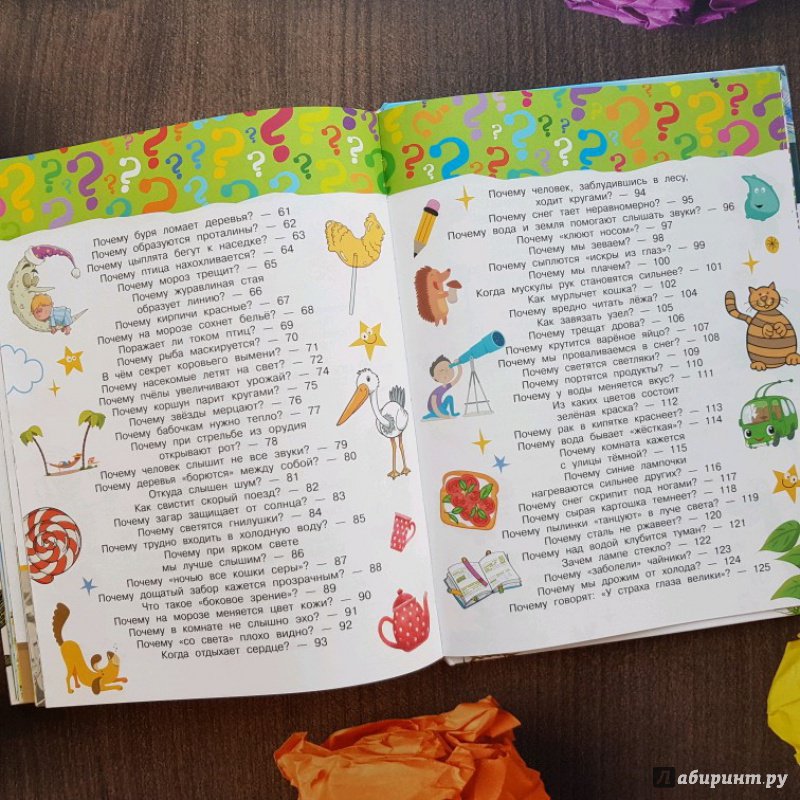 Почему буря ломает деревья? — 61
Почему образуются проталины? — 62
Почему цыплята бегут к наседке? — 63
Почему птица нахохливается? — 64
Почему мороз трещит? — 65
Почему журавлиная стая
образует линию? — 66
Почему кирпичи красные? — 67
Почему на морозе сохнет бельё? — 68
Поражает ли током птиц? — 69
Почему рыба маскируется? — 70
В чём секрет коровьего вымени? — 71
Почему насекомые летят на свет? — 72
Почему пчёлы увеличивают урожай? — 74
Почему коршун парит кругами? — 75
Почему звёзды мерцают? — 76
Почему бабочкам нужно тепло? — 77
Почему при стрельбе из орудия
открывают рот? — 78
Почему человек слышит не все звуки? — 79
Почему деревья «борются» между собой? — 80
Откуда слышен шум? — 81
Как свистит скорый поезд? — 82
Почему загар защищает от солнца? — 83
Почему светятся гнилушки? — 84
Почему трудно входить в холодную воду? — 85
Почему при ярком свете
мы лучше слышим? — 86
Почему «ночью все кошки серы»? — 87
Почему дощатый забор кажется прозрачным? — 88
Что такое «боковое зрение»? — 89
Почему на морозе меняется цвет кожи? — 90
Почему в комнате не слышно эхо? — 91
Почему «со света» плохо видно? — 92
Когда отдыхает сердце? — 93
Почему человек, заблудившись в лесу,
ходит кругами? — 94
Почему снег тает неравномерно? — 95
Почему вода и земля помогают слышать звуки? — 96
Почему «клюют носом»? — 97
Почему мы зеваем? — 98
Почему сыплются «искры из глаз»? — 99
Почему мы плачем? — 100
Когда мускулы рук становятся сильнее? — 101
Как мурлычет кошка? — 102
Почему вредно читать лёжа? — 104
Как завязать узел? — 105
Почему трещат дрова? — 106
Почему крутится варёное яйцо? — 107
Почему мы проваливаемся в снег? — 108
Почему светятся светляки? — 109
Почему портятся продукты? — 110
Почему у воды меняется вкус? — 111
Из каких цветов состоит
зелёная краска? — 112
Почему рак в кипятке краснеет? — 113
Почему вода бывает «жёсткая»? — 114
Почему комната кажется
с улицы тёмной? — 115
Почему синие лампочки
нагреваются сильнее других? — 116
Почему снег скрипит под ногами? — 117
Почему сырая картошка темнеет? — 118
Почему пылинки «танцуют» в луче света? — 119
Почему сталь не ржавеет? — 120
Почему над водой клубится туман? — 121
Зачем лампе стекло? — 122
Почему «заболели» чайники? — 123
Почему мы дрожим от холода? — 124
Почему говорят: «У страха глаза велики»? — 125
Лабиринт.ру